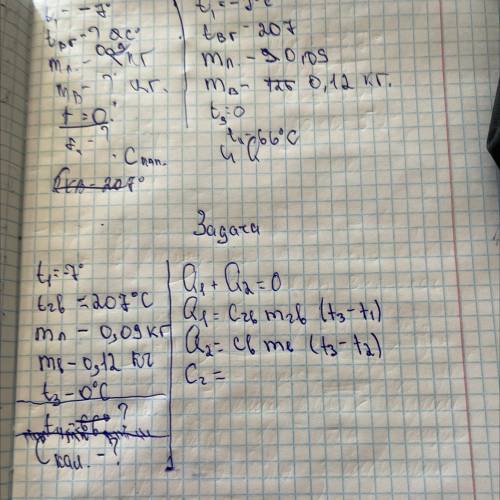 t₁ = -7°
t вг - ? 20°
mл. - 0,09 кг
mв - ? кг.
t = 0°
t₂ - ?
Cкал.
t₁ = -7°C
tвг - 207
mл - 0,09
mв - 0,12 кг.
t₃ = 0
t₄ - 66°C
Задача
t₁ = -7°
tгв = 207°C
mл - 0,09 кг
mв - 0,12 кг
t₃ - 0°C
Cкал. - ?
Q₁ + Q₂ = 0
Q₁ = Cгв mгв (t₃ - t₁)
Q₂ = Cв mв (t₃ - t₂)
C₂ =